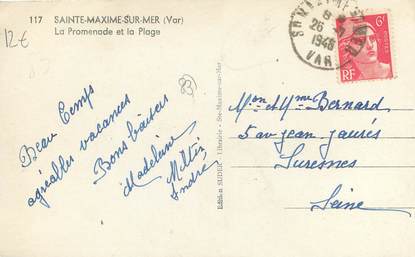 117 SAINTE-MAXIME-SUR-MER (Var)
La Promenade et la Plage
12€
83
Beau temps
agréables vacances
Bons baisers
Madeleine
André
Edition SUDER, Librairie - Ste-Maxime-sur-Mer
26
1948
VAR
6F
RF
Mon et Mme Bernard
5 av jean jaurès
Suresnes
Seine